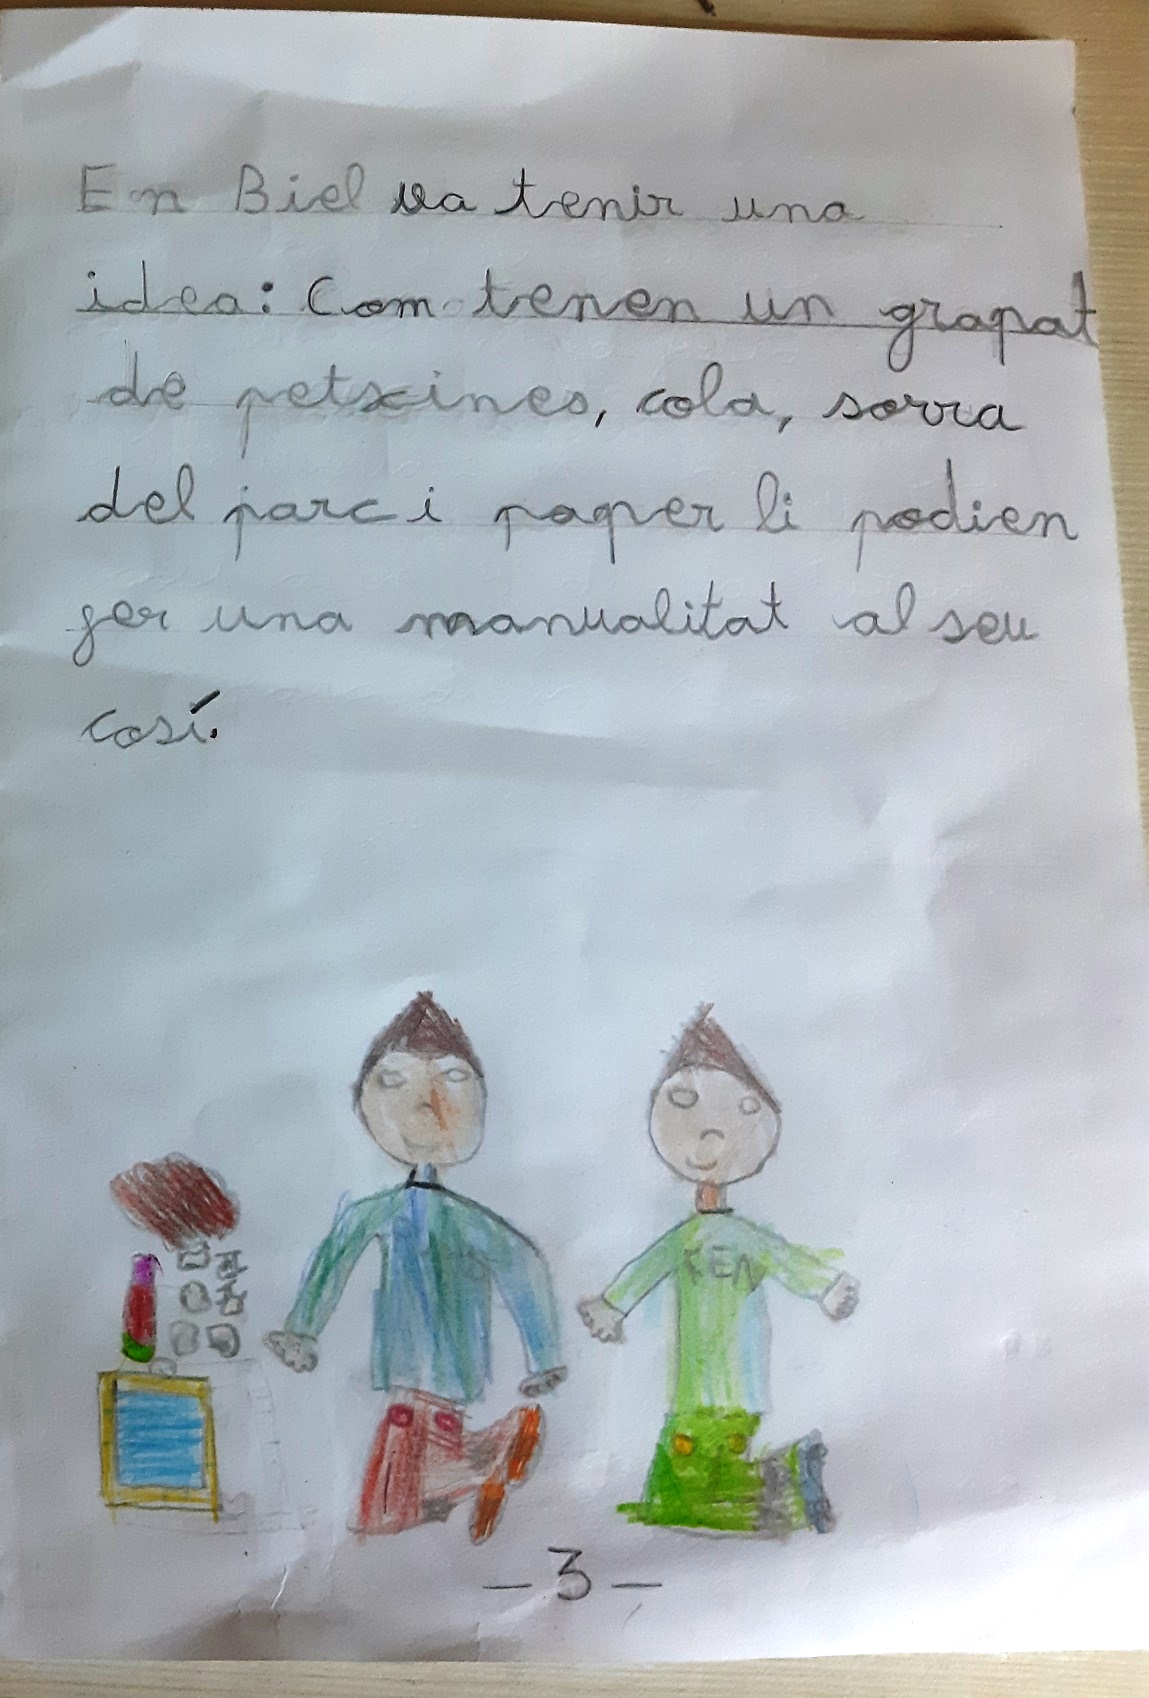 En Biel va tenir una
idea: Com tenen un grapat
de petxines, cola, sorra
del parc i paper li podien
fer una manualitat al seu
cosí.
KEN
- 3 -